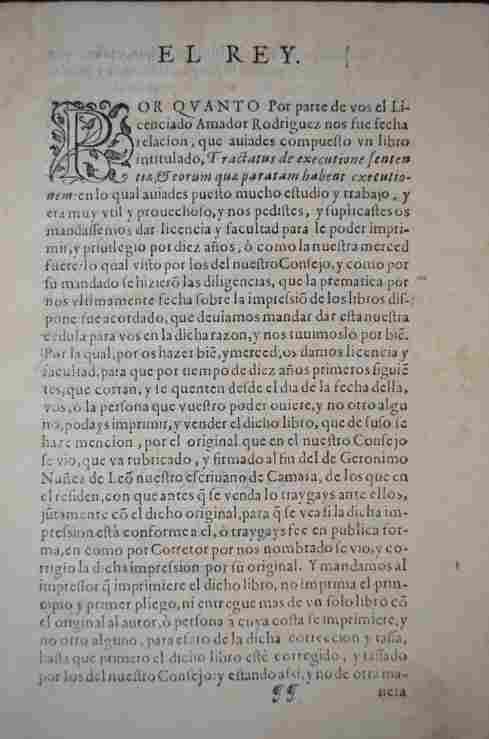 EL REY.
POR QVANTO Por parte de vos el Li-
cenciado Amador Rodriguez nos fue fecha
relacion, que auiades compuesto vn libro
intitulado, Tractatus de executione senten
tiæ, & eorum quæ paratam habent executio-
nem en lo qual auiades puesto mucho estudio y trabajo, y
era muy vtil y prouechoso, y nos pedistes, y suplicastes os
mandassemos dar licencia y facultad para le poder impri-
mir, y priuilegio por diez años, ò como la nuestra merced
fuere: lo qual visto por los del nuestro Consejo, y como por
su mandado se hizierõ las diligencias, que la prematica por
nos vltimamente fecha sobre la impressiõ de los libros dis-
pone fue acordado, que deuiamos mandar dar esta nuestra
cedula para vos en la dicha razon, y nos tuuimoslo por biẽ.
Por la qual, por os hazer biẽ, y merced, os damos licencia y
facultad, para que por tiempo de diez años primeros siguiẽ
tes, que corran, y se quenten desde el dia de la fecha della,
vos, ò la persona que vuestro poder ouiere, y no otro algu
no, podays imprimir, y vender el dicho libro, que de suso se
haze mencion, por el original que en el nuestro Consejo
se vio, que va rubricado, y firmado al fin del de Geronimo
Nuñez de Leõ nuestro escriuano de Camara, de los que en
el residen, con que antes q̃ se venda lo traygays ante ellos,
jũtamente cõ el dicho original, para q̃ se vea si la dicha im-
pression està conforme a el, ò traygays fee en publica for-
ma, en como por Corretor por nos nombrado se vio, y co-
rrigio la dicha impression por su original. Y mandamos al
impressor q̃ imprimiere el dicho libro, no imprima el prin-
cipio y primer pliego, ni entregue mas de vn solo libro cõ
el original al autor, ò persona a cuya costa se imprimiere, y
no otro alguno, para efeto de la dicha correccion y tassa,
hasta que primero el dicho libro estè corregido, y tassado
por los del nuestro Consejo: y estando assi, y no de otra ma-
¶¶ neia